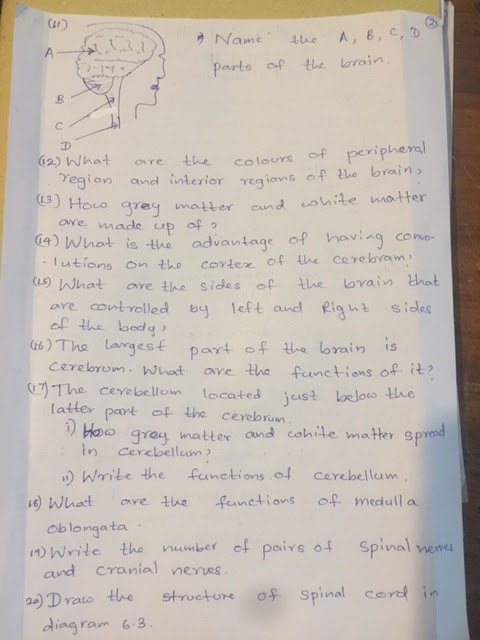 (2)
(11)
A
B
C
D
Name the A, B, C, D
parts of the brain.
(12) What are the colours of peripheral
region and interior regions of the brain?
(13) How grey matter and white matter
are made up of?
(14) What is the advantage of having convo-
-lutions on the cortex of the cerebram?
(15) What are the sides of the brain that
are controlled by left and Right sides
of the body?
(16) The largest part of the brain is
cerebrum. What are the functions of it?
(17) The cerebellum located just below the
latter part of the cerebrum.
i) How grey matter and white matter spread
in cerebellum?
ii) Write the functions of cerebellum.
18) What are the functions of medulla
oblongata.
19) Write the number of pairs of spinal nerves
and cranial nerves.
20) Draw the structure of spinal cord in
diagram 6.3.